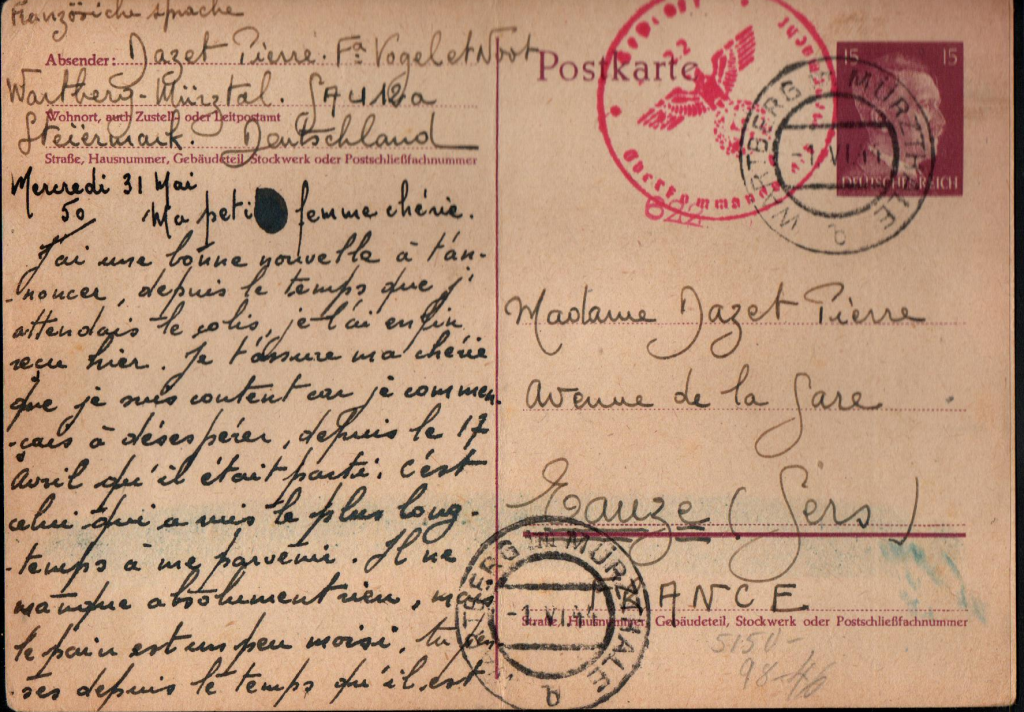 Französiche sprache
Absender: Dazet Pierre. Fa Vogel et Noot
Wartberg-Mürztal. SAU 12a
Wohnort, auch Zustell- oder Leitpostamt
Steiermark. Deutschland
Straße, Hausnummer, Gebäudeteil, Stockwerk oder Postschließfachnummer
Mercredi 31 Mai
50 Ma peti femme chérie.
J'ai une bonne nouvelle à t'an-
-noncer, depuis le temps que j'
attendais le colis, je l'ai enfin
reçu hier. Je t'assure ma chérie
que je suis content car je commen.
-çais à désespérer, depuis le 17
Avril qu'il était parti. C'est
celui qui a mis le plus long-
-temps à me parvenir. Il ne
manque absolument rien, mais
le pain est un peu moisi, tu pen
-ses depuis le temps qu'il est
Postkarte
Oberkommando
622
15 15
DEUTSCHES REICH
WARTBERG im MÜRZTHALE
-1.VI.44
b
Madame Dazet Pierre
Avenue de la Gare
Eauze (Gers)
ANCE
Straße, Hausnummer, Gebäudeteil, Stockwerk oder Postschließfachnummer
WARTBERG im MÜRZTHALE
-1.VI.44
b
5150-
98-46